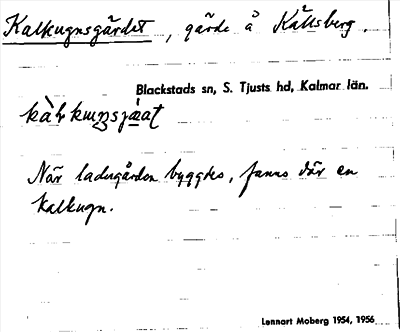 Kalkugnsgärdet, gärde å Källsberg.
Blackstads sn, S. Tjusts hd, Kalmar län.
När ladugården byggdes, fanns där en
kalkugn.
Lennart Moberg 1954, 1956